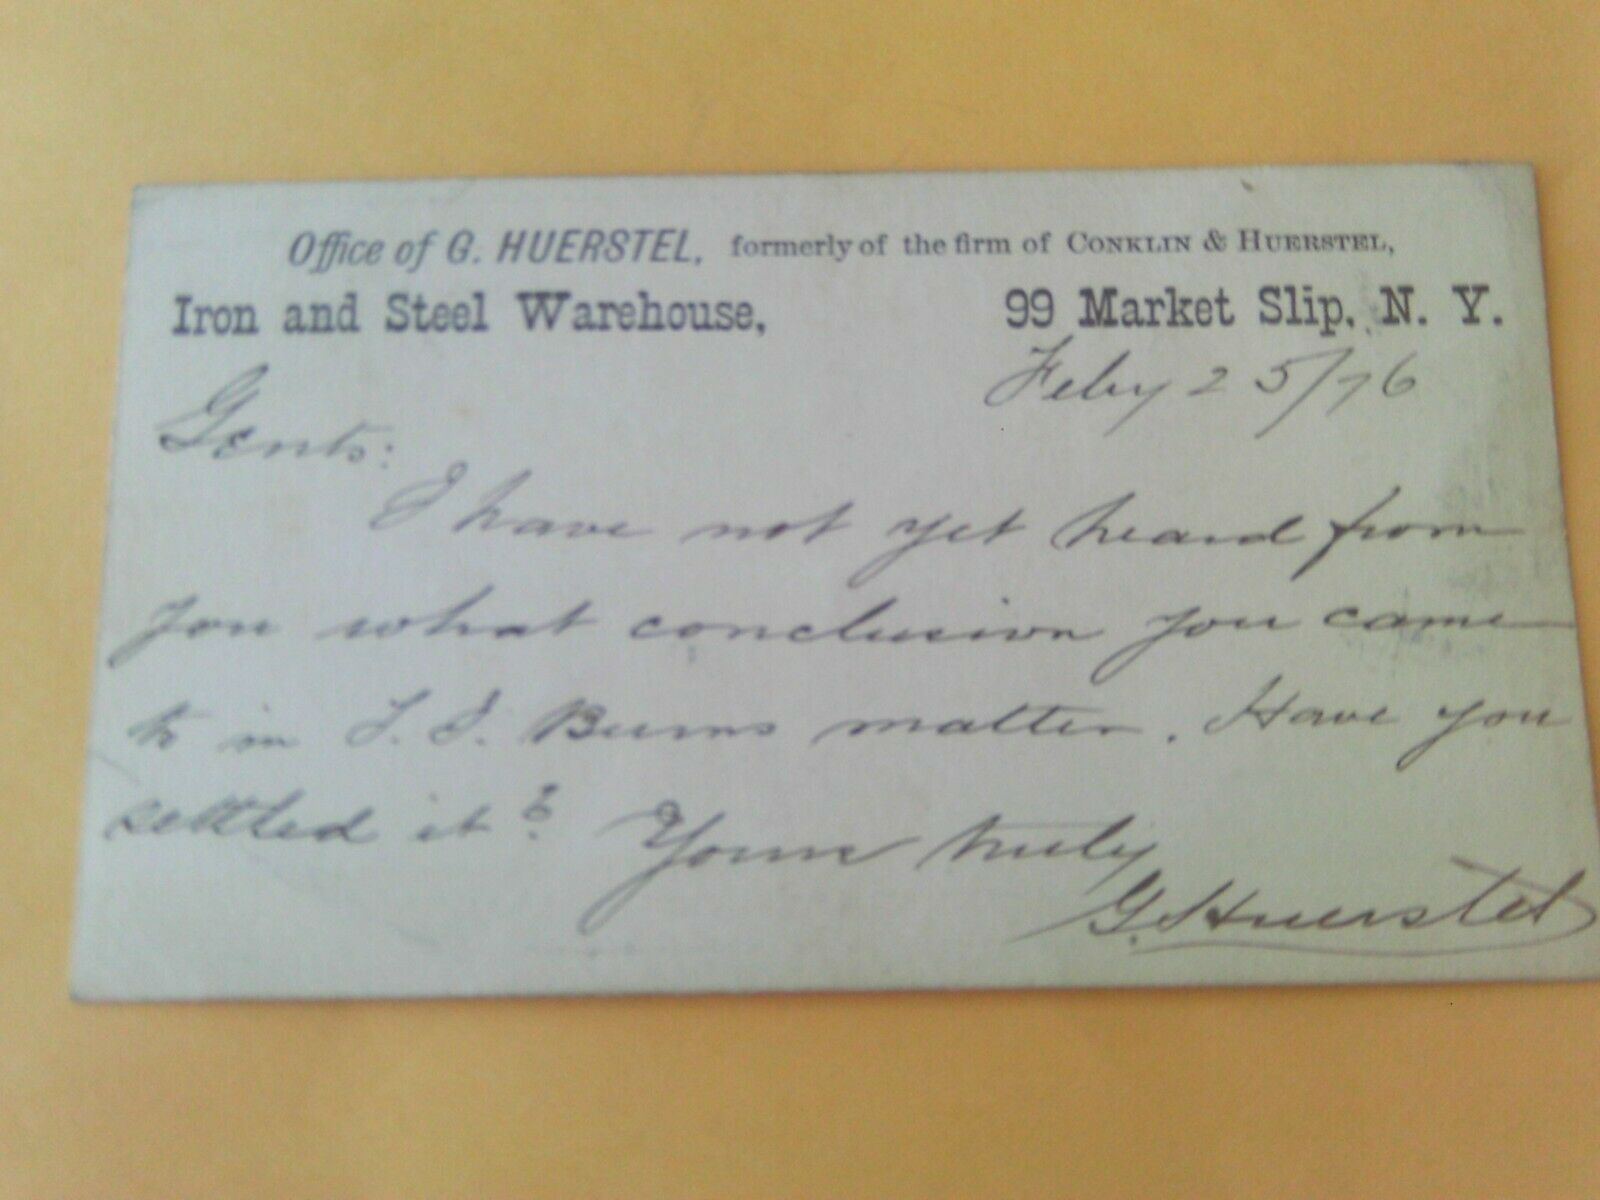 Office of G. HUERSTEL, formerly of the firm of CONKLIN & HUERSTEL,
Iron and Steel Warehouse, 99 Market Slip, N. Y.
Feby 25/76
Gents:
I have not yet heard from
you what conclusion you came
to in Burns matter. Have you
settled it? Yours truly
G. Huerstel